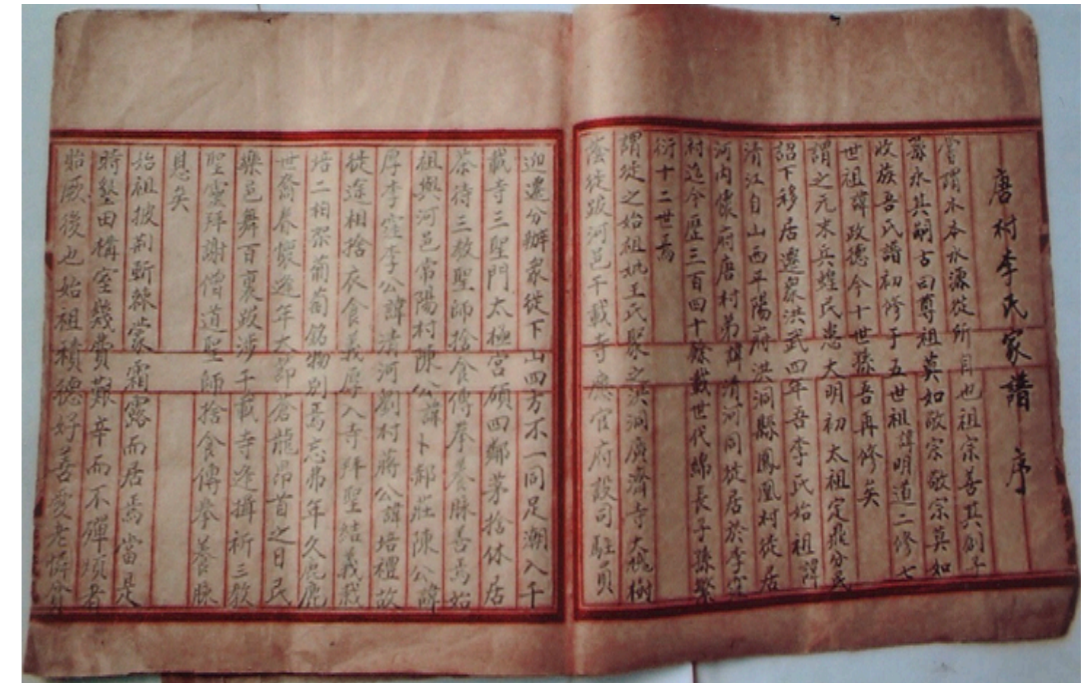 唐村李氏家譜 序
嘗謂水本水源從所自也祖宗善其創子
孫永其嗣古曰尊祖莫如敬宗敬宗莫如
收族吾氏譜初修于五世祖諱明道二修七
世祖諱政德今十世孫吾再修矣
謂之元末兵蝗民患大明初太祖定鼎分民
詔下移居遷眾洪武四年吾李氏始祖諱
清江自山西平陽府洪洞縣鳳凰村徙居
河內懷府唐村弟諱清河同徙居於李窪
村迄今歷三百四十餘載世代綿長子孫繁
衍十二世焉
謂徙之始祖妣王氏聚之洪洞廣濟寺大槐樹
蔭徙跋河邑千載寺應官府設司駐員
迎遷分辦眾徙下山四方不一同足潮入千
載寺三聖門太極宮碩四鄰茅捨休居
茶待三教聖師捨食傳拳養脉善焉始
祖與河邑常陽村陳公諱卜郝莊陳公諱
厚李窪李公諱清河劉村蔣公諱培禮故
徙途相捨衣食義厚入寺拜聖結義栽
培二相架葡萄銘物別焉忘弗年久鹿鹿
世裔眷聚逢年大節蒼龍昂首之日民
樂邑舞百里跋涉千載寺逢揖祈三教
聖靈拜謝僧道聖師捨食傳拳養脉
恩矣
始祖披荆斬棘蒙霜露而居焉當是
時墾田構室幾費艱辛而不殫煩者
貽厥後也始祖積德好善愛老憐